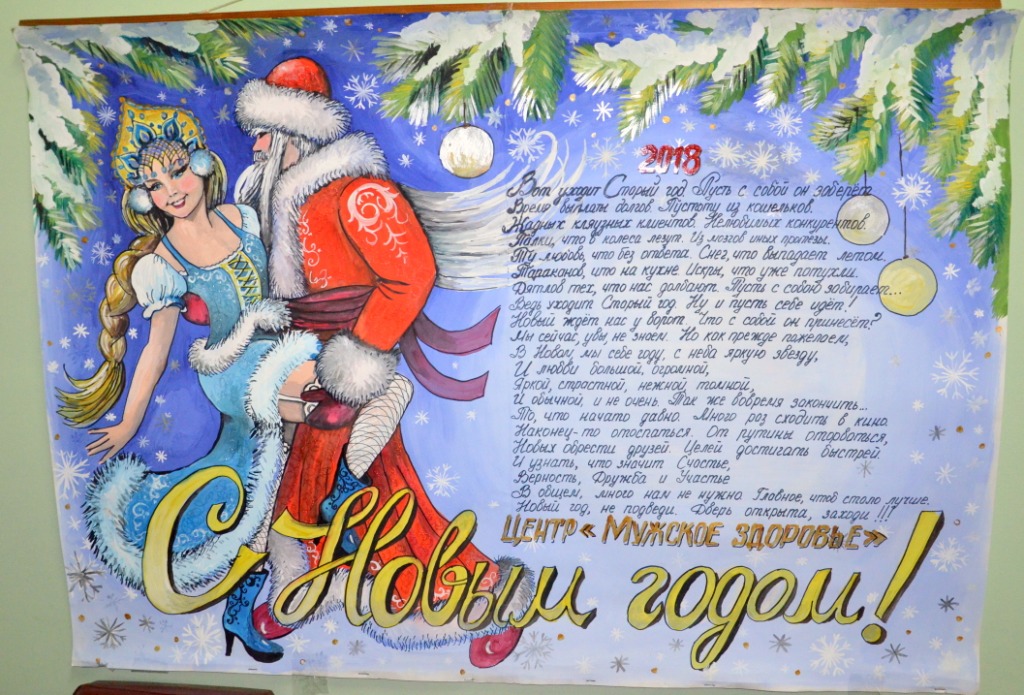 2018
Вот уходит Старый год. Пусть с собой он заберёт
Время выплаты долгов. Пустоту из кошельков.
Жадных кляузных клиентов. Нелюбимых конкурентов.
Палки, что в колёса лезут. Из мозгов иных протезы.
Ту любовь, что без ответа. Снег, что выпадает летом.
Тараканов, что на кухне. Искры, что уже потухли.
Дятлов тех, что нас долбают. Пусть с собою забирает...
Ведь уходит Старый год. Ну и пусть себе идёт!
Новый ждёт нас у ворот. Что с собой он принесёт?
Мы сейчас, увы, не знаем. Но как прежде пожелаем,
В Новом мы себе году, с неба яркую звезду,
И любви большой, огромной,
Яркой, страстной, нежной томной,
И обычной, и не очень. Так же вовремя закончить...
То, что начато давно. Много раз сходить в кино.
Наконец-то отоспаться. От рутины оторваться,
Новых обрести друзей. Целей достигать быстрей.
И узнать, что значит Счастье,
Верность, Дружба и Участье
В общем, много нам не нужно. Главное, чтоб стало лучше.
Новый год, не подведи. Дверь открыта, заходи !!!
ЦЕНТР «МУЖСКОЕ ЗДОРОВЬЕ»
С Новым годом!